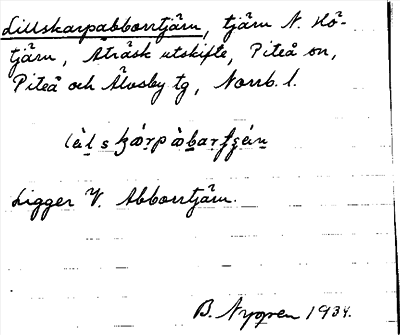 Lillskarpabborrtjärn, tjärn N. Hö-
tjärn, Åträsk utskifte, Piteå sn,
Piteå och Älvsby tg, Norrb. l.
Ligger V. Abborrtjärn.
B. Nygren 1934.